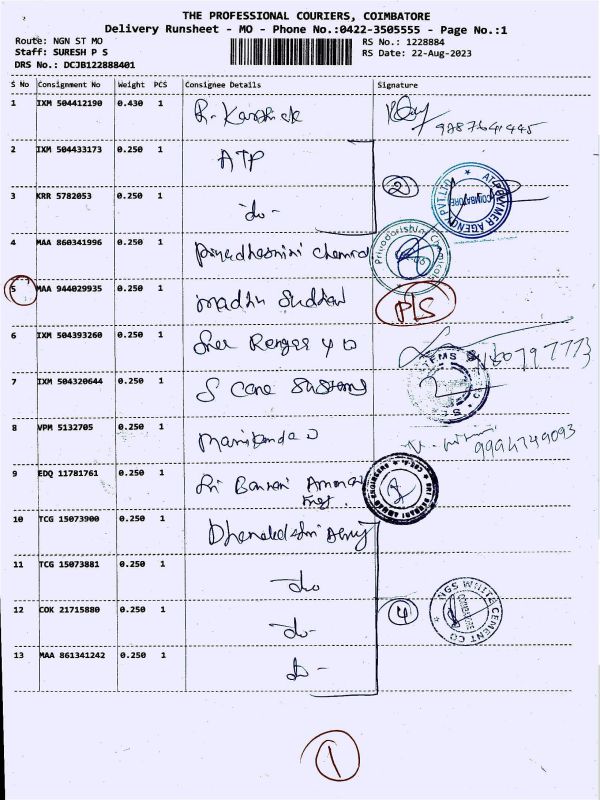 THE PROFESSIONAL COURIERS, COIMBATORE
Delivery Runsheet - MO - Phone No.:0422-3505555 - Page No.:1
Route: NGN ST MO
Staff: SURESH P S
DRS No.: DCJB122888401
RS No.: 1228884
RS Date: 22-Aug-2023
S No Consignment No Weight PCS Consignee Details Signature
1 IXM 504412190 0.430 1 R. Karthick
2 IXM 504433173 0.250 1 ATP
2
3 KRR 5782053 0.250 1 -do-
4 MAA 860341996 0.250 1
5 MAA 944029935 0.250 1 P/S
6 IXM 504393260 0.250 1
7 IXM 504320644 0.250 1
8 VPM 5132705 0.250 1 9994749093
9 EDQ 11781761 0.250 1 Sri Bannari Amman
10 TCG 15073900 0.250 1
11 TCG 15073881 0.250 1 do
12 COK 21715880 0.250 1 do-
4
NGS WHITE CEMENT CO
COIMBATORE
13 MAA 861341242 0.250 1 do-
1